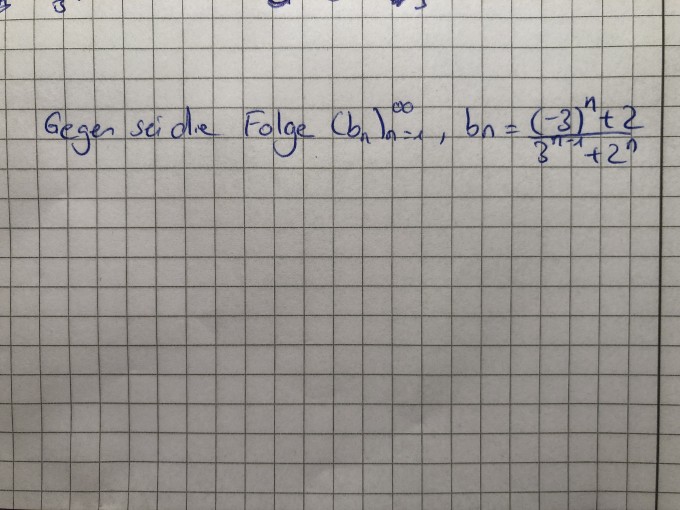 Gegen sei die Folge (bₙ)ₙ₌₁^∞, bₙ = ((-3)ⁿ + 2)/(3ⁿ⁻¹ + 2ⁿ)